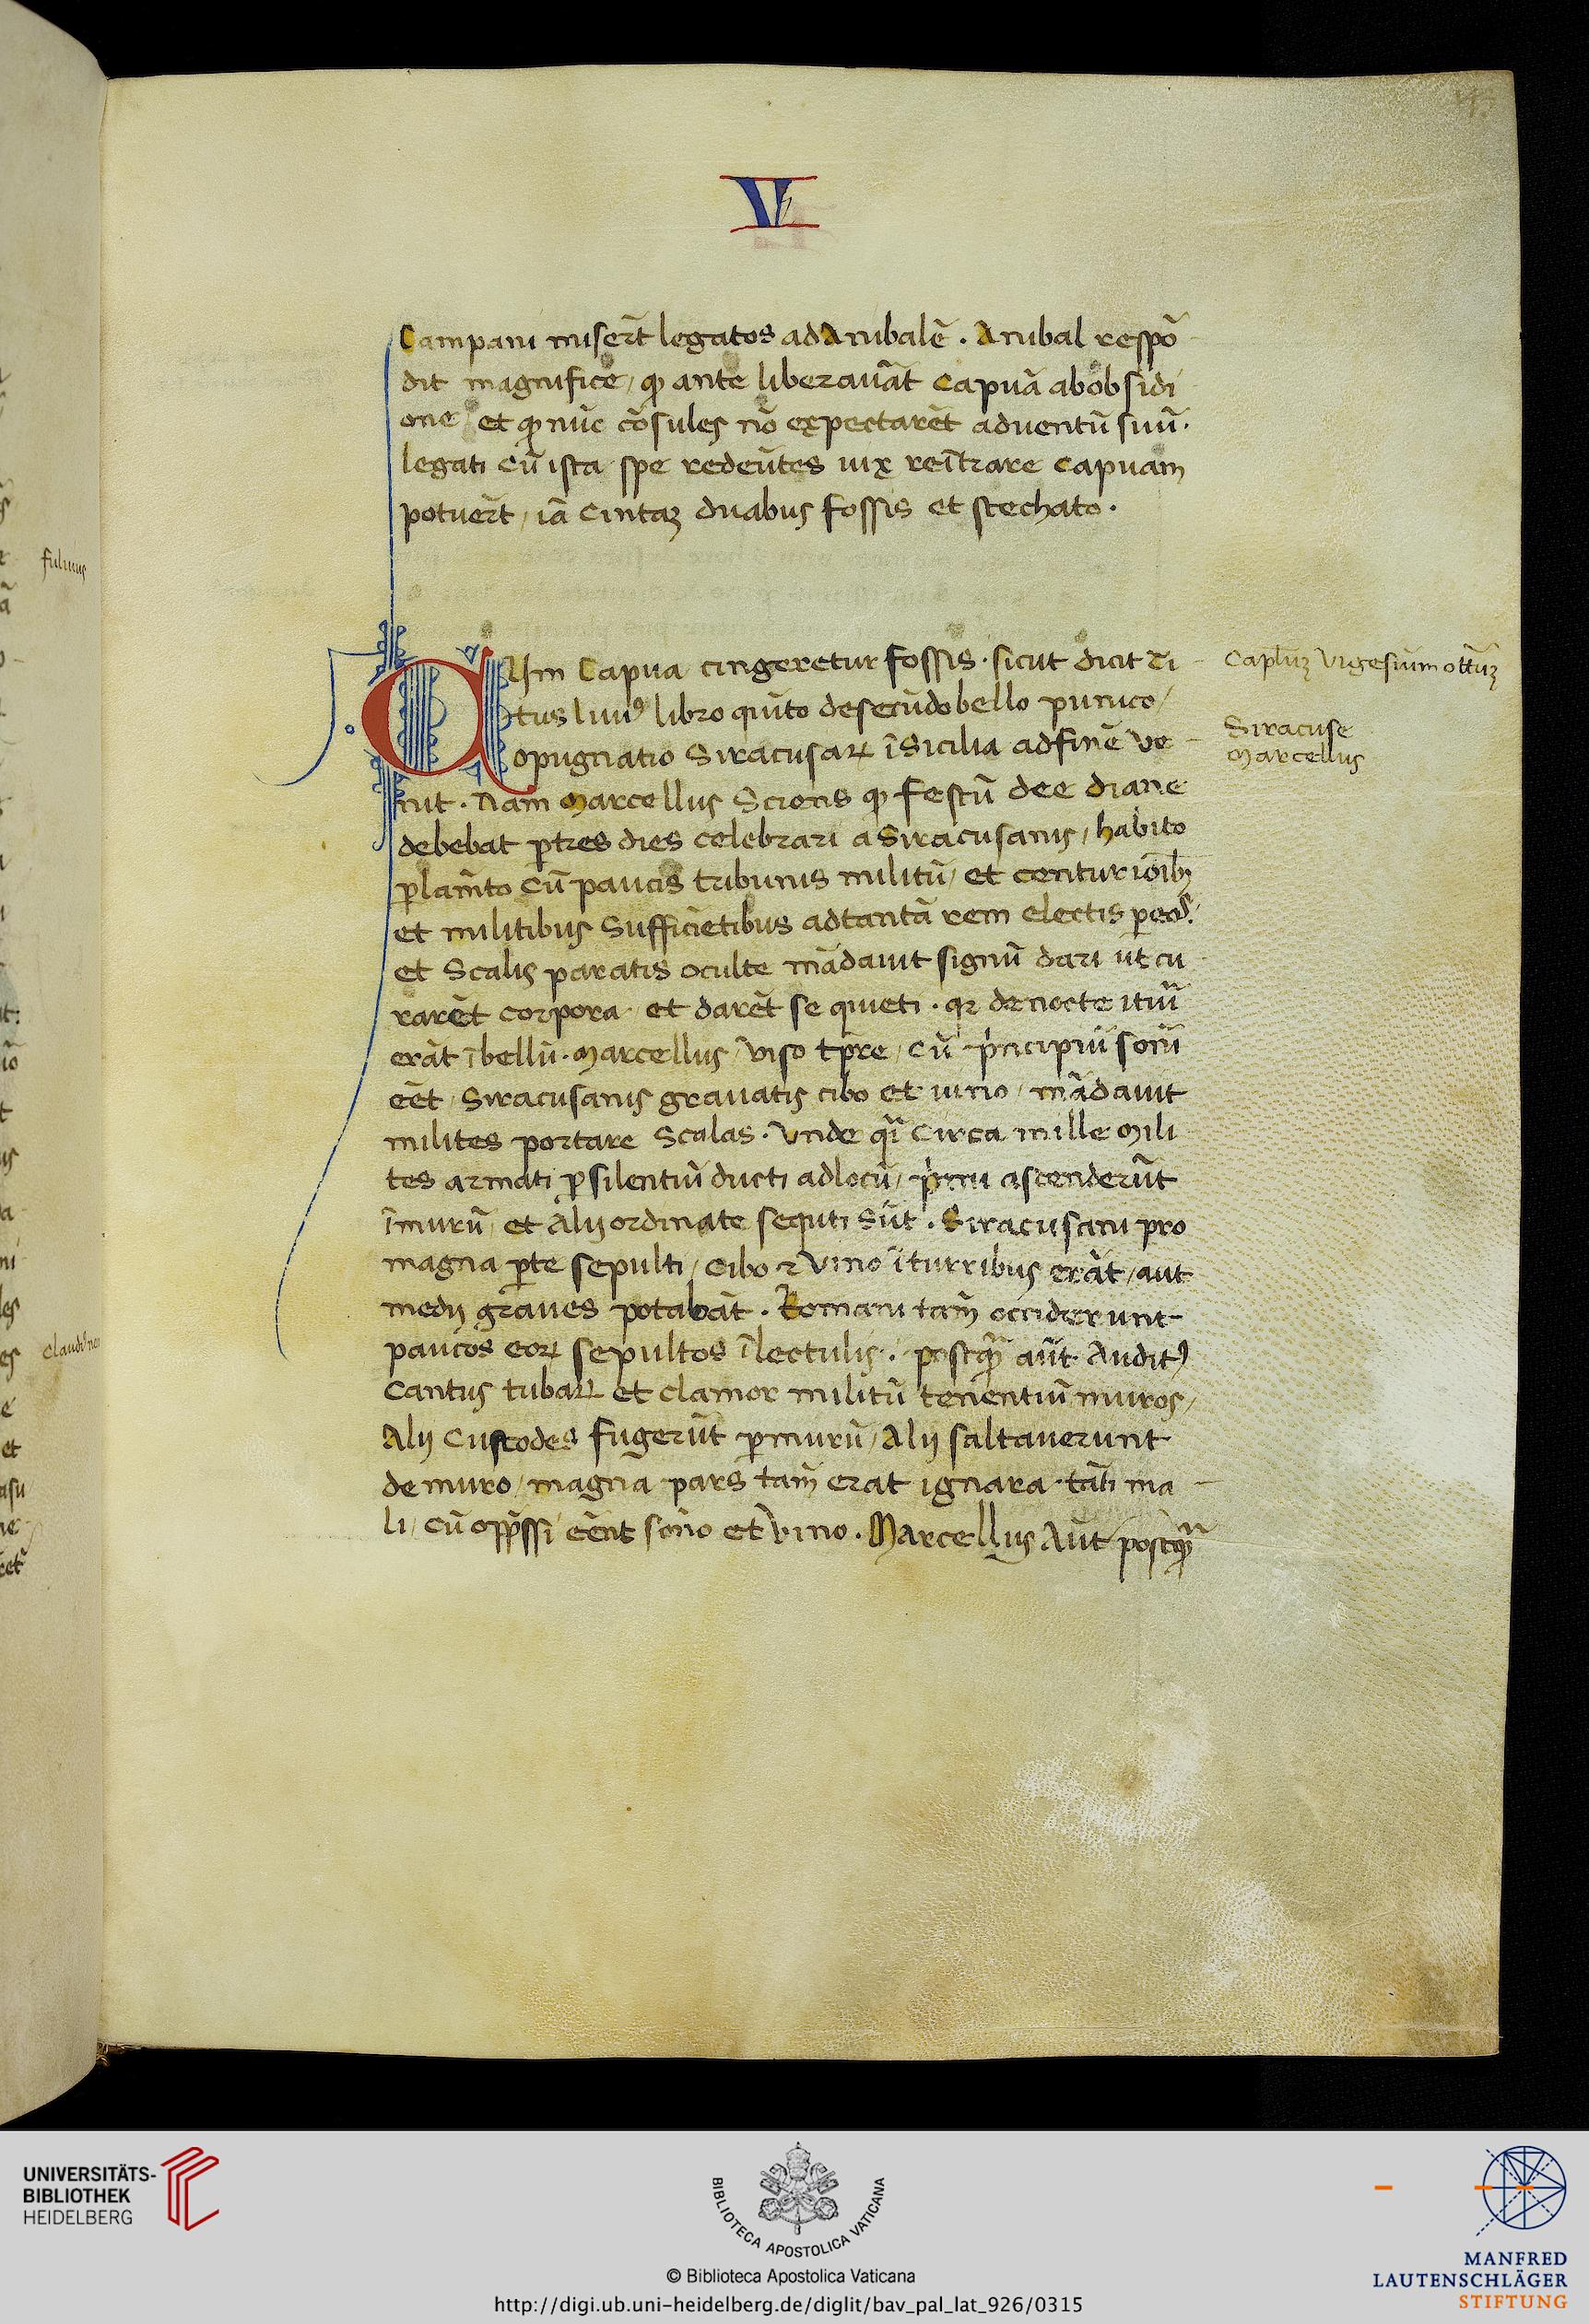 VI
Campani miserṫ legatos ad Anibalē . Anibal respō
dit magnifice / qđ ante liberavāt Capuā ab obsidi
one / et qđ nūc cōsules nō expectarēt adventū suū .
legati Cū ista spe redeūtes uix reītrare Capuam
potuerṫ / iā Cintaꝫ duabus fossis et stechato .
CUm Capua cingeretur fossis . sicut dicit Ti
tus liuiꝰ libro quīto de secūdo bello punico /
opugnatio Siracusaꝝ ī Sicilia ad finē ve
nit . Nam Marcellus Sciens qđ festū dee diane
debebat ꝑ tres dies celebrari a Siracusanis / habito
ꝑlamīto Cū paucis tribunis militū / et centurioībꝫ
et militibus sufficiētibus ad tantā rem electis ꝑ eos .
et Scalis paratis oculte mādauit signū dari ut cu
rarēt corpora et darēt se quieti . qꝛ de nocte ituri
erāt ī bellū . Marcellus / viso tꝑre / Cū pⁱncipiū soni
eēt / Siracusanis grauatis cibo et uino / mādauit
milites portare Scalas . Vnde qⁱ Circa mille Mili
tes armati ꝑ silentiū ducti ad locū / pⁱmi ascenderūt
ī murū / et Alij ordinate sequti sūt . Siracusani pro
magna ꝑte sepulti / Cibo ⁊ Vino ī turribus erāt / aut
medij graues potabāt . Romani tam̄ occiderunt
paucos eoꝝ sepultos ī lectulis . postqᵃ aūt Auditꝰ
Cantus tubaꝝ et clamor militū tenentiū muros /
Alij Custodes fugerūt ꝑ murū / Alij saltauerunt
de muro / magna pars tam̄ erat ignara tāti ma
li / Cū opp̄ssi eēnt sōno et Vino . Marcellus Aūt postqᵃ
Capl̄uꝫ Vigesium ottūꝫ
Siracuse
Marcellus
fuluius
UNIVERSITÄTS-
BIBLIOTHEK
HEIDELBERG
BIBLIOTECA APOSTOLICA VATICANA
© Biblioteca Apostolica Vaticana
http://digi.ub.uni-heidelberg.de/diglit/bav_pal_lat_926/0315
MANFRED
LAUTENSCHLÄGER
STIFTUNG